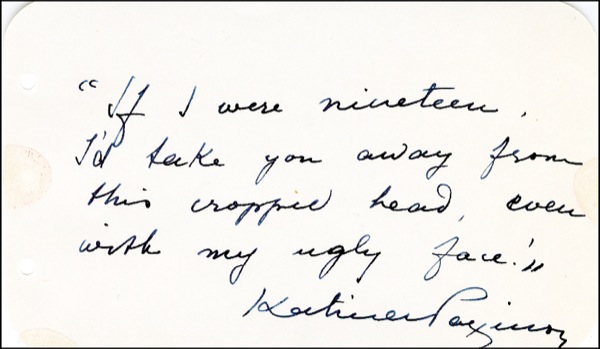 "If I were nineteen,
I'd take you away from
this cropped head, even
with my ugly face!"
Katina Paxinou